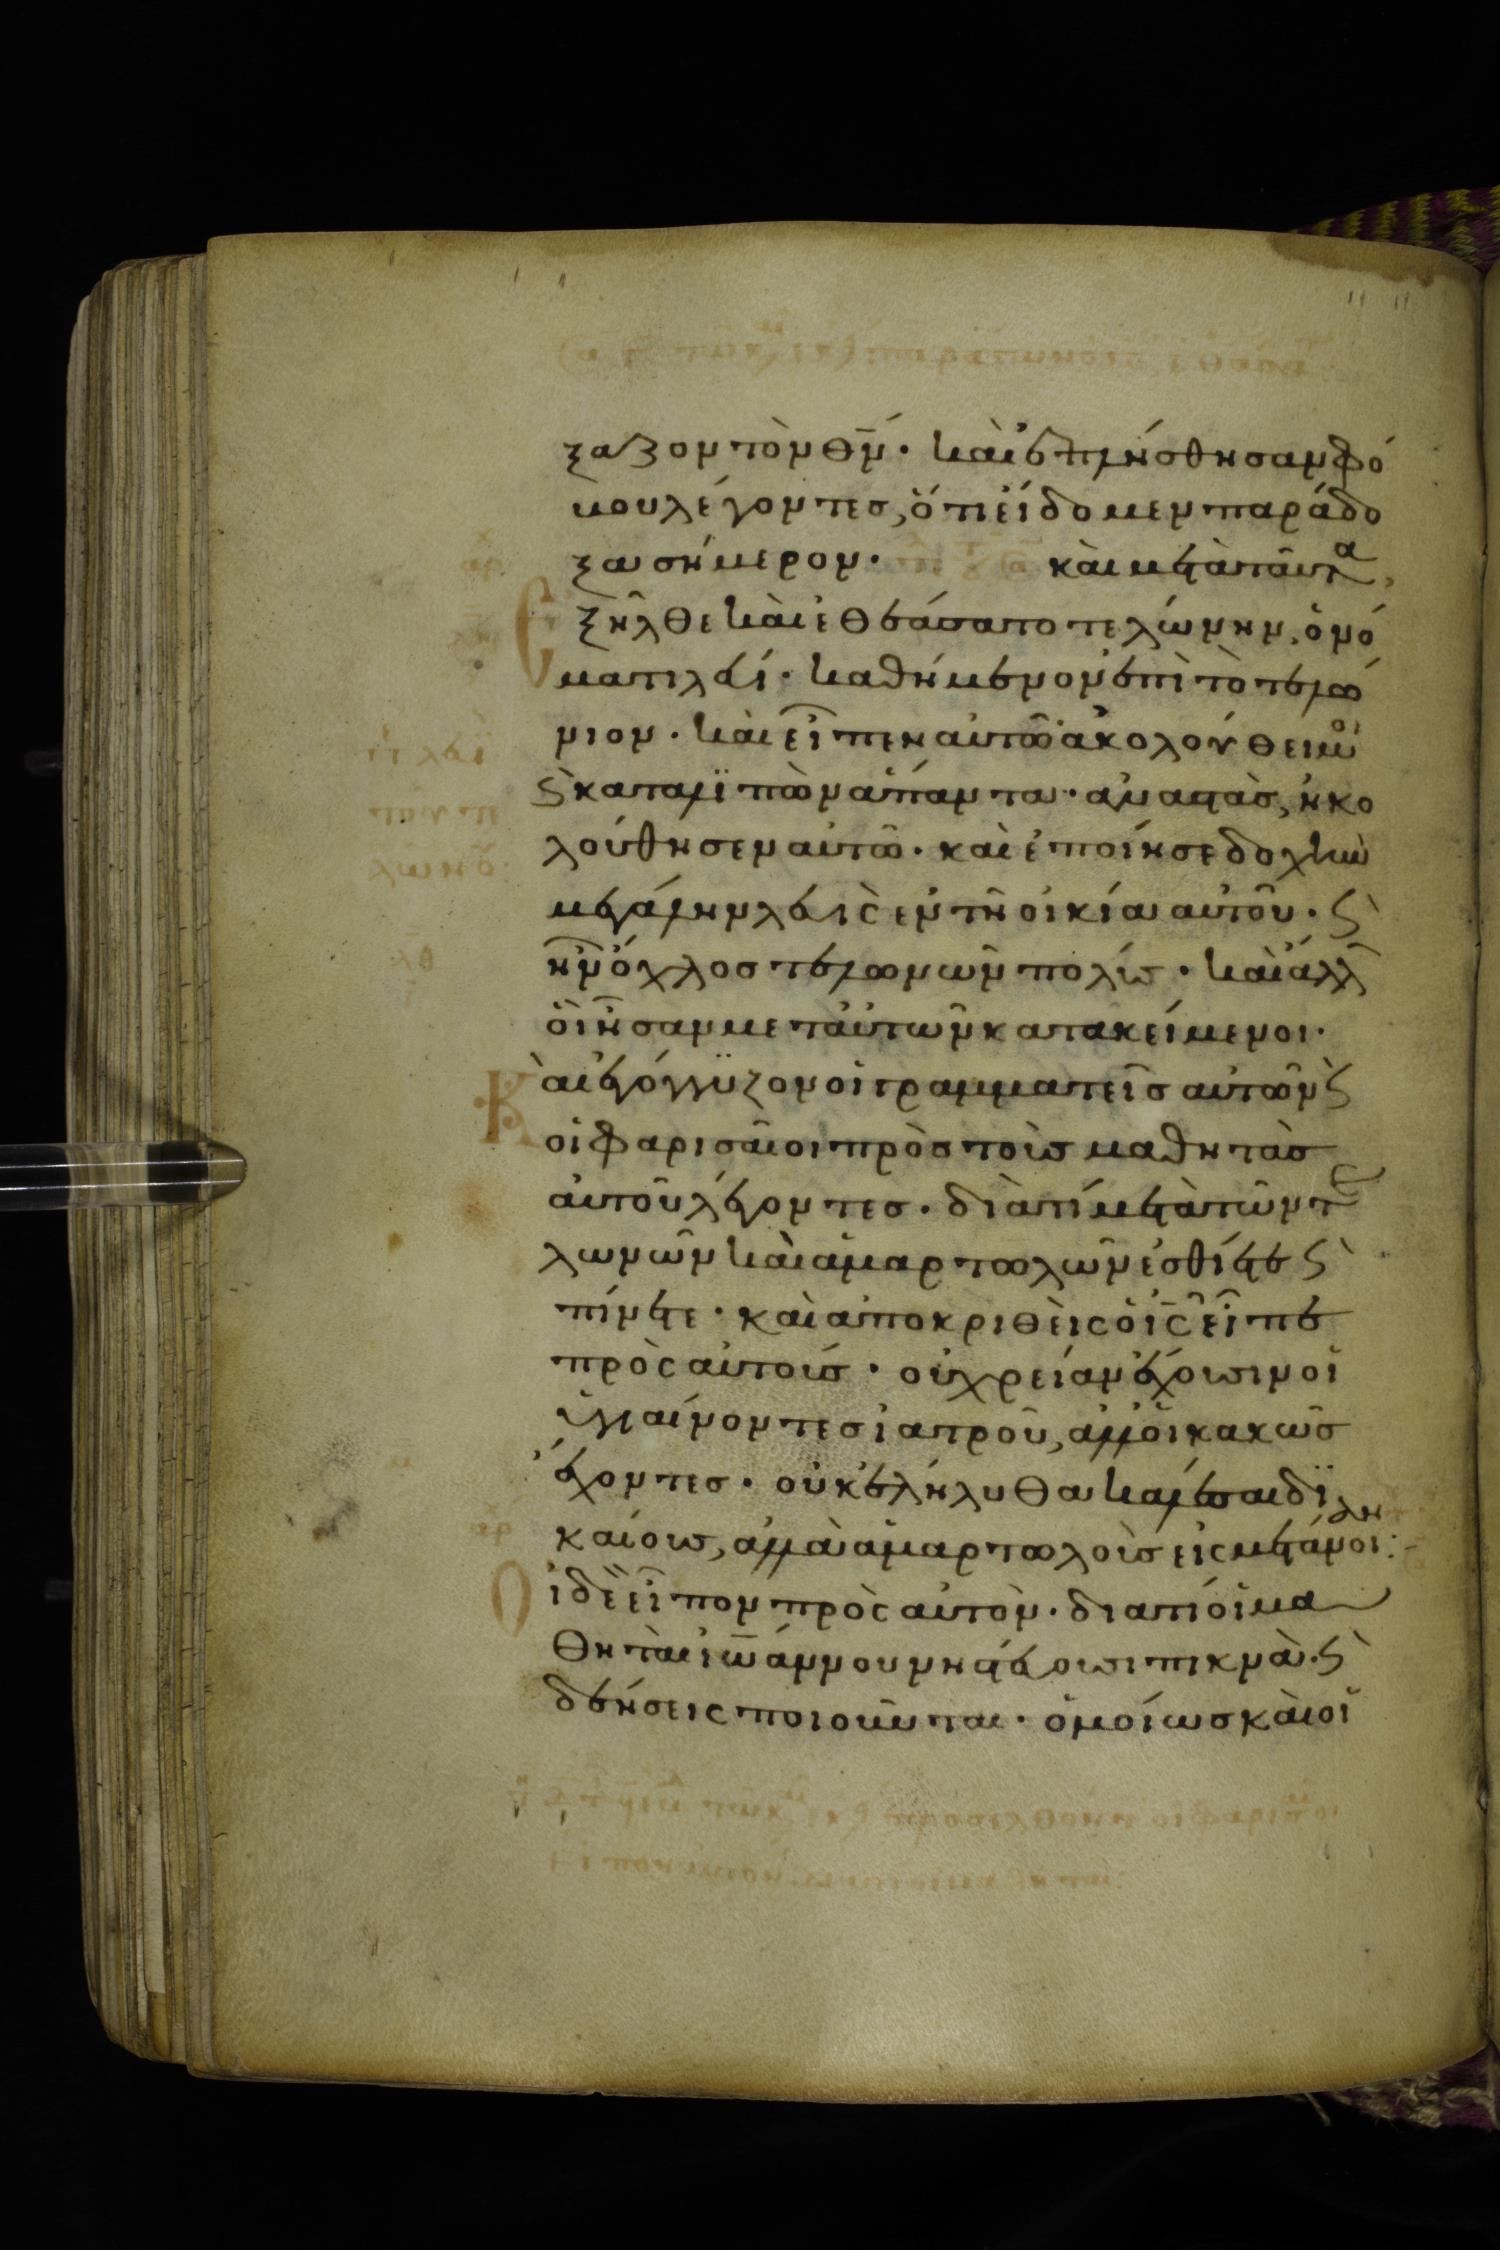 ξαζον τὸν θ̅ν̅· καὶ ἐπλήσθησαν φό
βου λέγοντες, ὅτι εἴδομεν παράδο
ξα σήμερον· καὶ μετὰ ταῦτα
Ἐξῆλθε καὶ ἐθεάσατο τελώνην, ὀνό
ματι λευί· καθήμενον ἐπὶ τὸ τελώ
νιον· καὶ εἶπεν αὐτῶ ἀκολούθει μοι
ϛ̀ καταλιπὼν ἅπαντα· ἀναστὰς, ἠκο
λούθησεν αὐτῶ· καὶ ἐποίησε δοχὴν
μεγάλην λευὶς ἐν τῆ οἰκία αὐτοῦ· ϛ̀
ἦν ὄχλος τελωνῶν πολύς· καὶ ἄλλ
οἳ ἦσαν μετ αὐτῶν κατακείμενοι·
Κὰι ἐγόγγυζον οἱ γραμματεῖς αὐτῶν ϛ̀
οἱ φαρισαῖοι πρὸς τοὺς μαθητὰς
αὐτοῦ λέγοντες· διατί μετὰ τῶν τε
λωνῶν καὶ ἁμαρτωλῶν ἐσθίετε ϛ̀
πίνετε· καὶ ἀποκριθεὶς ὁ ι̅ς̅ εἶπε
πρὸς αὐτούς· οὐ χρείαν ἔχουσιν οἱ
ὑγιαίνοντες ἰατροῦ, ἀλλ οἱ κακῶς
ἔχοντες· οὐκ ἐλήλυθα καλέσαι δι
καίους, ἀλλὰ ἁμαρτωλοὺς εἰς μετάνοι:
Οἱ δὲ εἶπον πρὸς αὐτὸν· διατί οἱ μα
θηταὶ ἰωάννου νηστεύουσι πυκνὰ· ϛ̀
δεήσεις ποιοῦνται· ὁμοίως καὶ οἱ